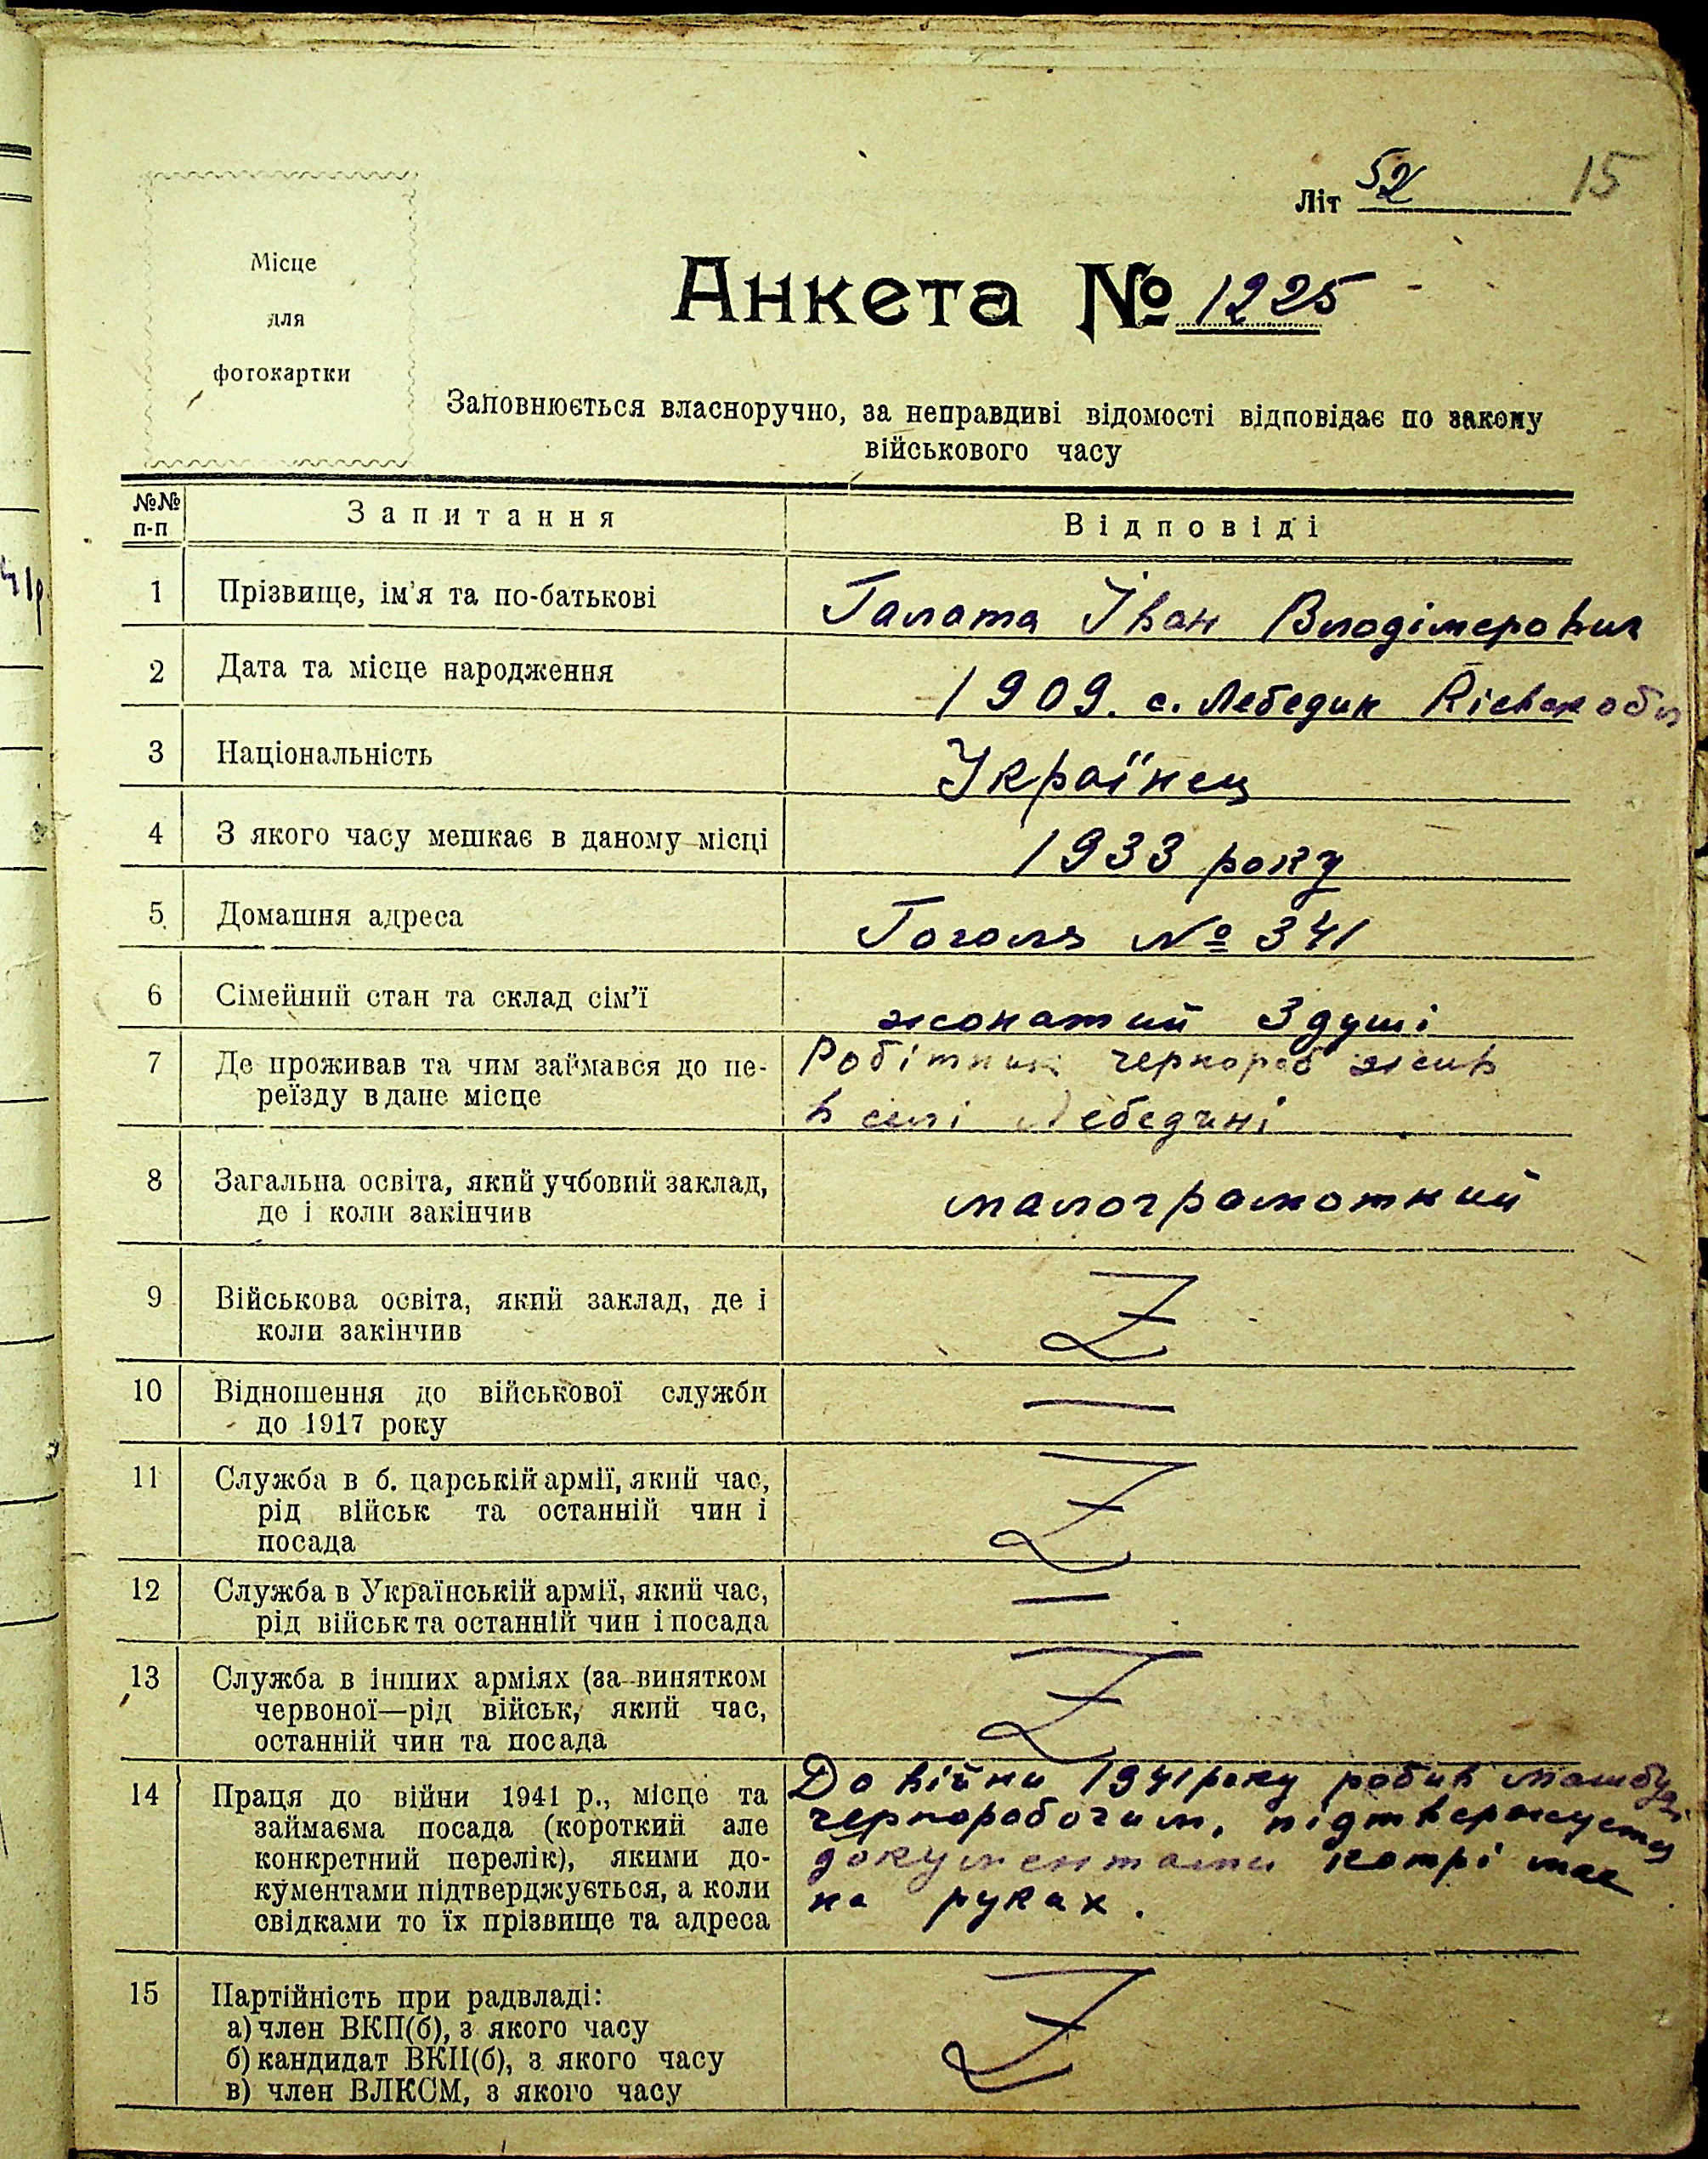 15
Літ 52
Місце
для
фотокартки
Анкета № 1225
Заповнюється власноручно, за неправдиві відомості відповідає по закону
військового часу
№№ п-п Запитання Відповіді
1 Прізвище, ім'я та по-батькові Галата Іван Влодімерович
2 Дата та місце народження 1909. с. Лебедин Київск обл
3 Національність Українец
4 З якого часу мешкає в даному місці 1933 року
5 Домашня адреса Гоголя № 341
6 Сімейний стан та склад сім'ї жонатий 3 душі
7 Де проживав та чим займався до пе- Робітник чернороб жив
реїзду в дане місце в селі Лебедині
8 Загальна освіта, який учбовий заклад, малограмотний
де і коли закінчив
9 Військова освіта, який заклад, де і Z
коли закінчив
10 Відношення до військової служби —
до 1917 року
11 Служба в б. царській армії, який час, Z
рід військ та останній чин і
посада
12 Служба в Українській армії, який час, —
рід військ та останній чин і посада
13 Служба в інших арміях (за винятком Z
червоної—рід військ, який час,
останній чин та посада
14 Праця до війни 1941 р., місце та До війни 1941 року робив
займаєма посада (короткий але чернорабочим,
конкретний перелік), якими до- документами котрі має
кументами підтверджується, а коли на руках.
свідками то їх прізвище та адреса
15 Партійність при радвладі: Z
а) член ВКП(б), з якого часу
б) кандидат ВКП(б), з якого часу
в) член ВЛКСМ, з якого часу